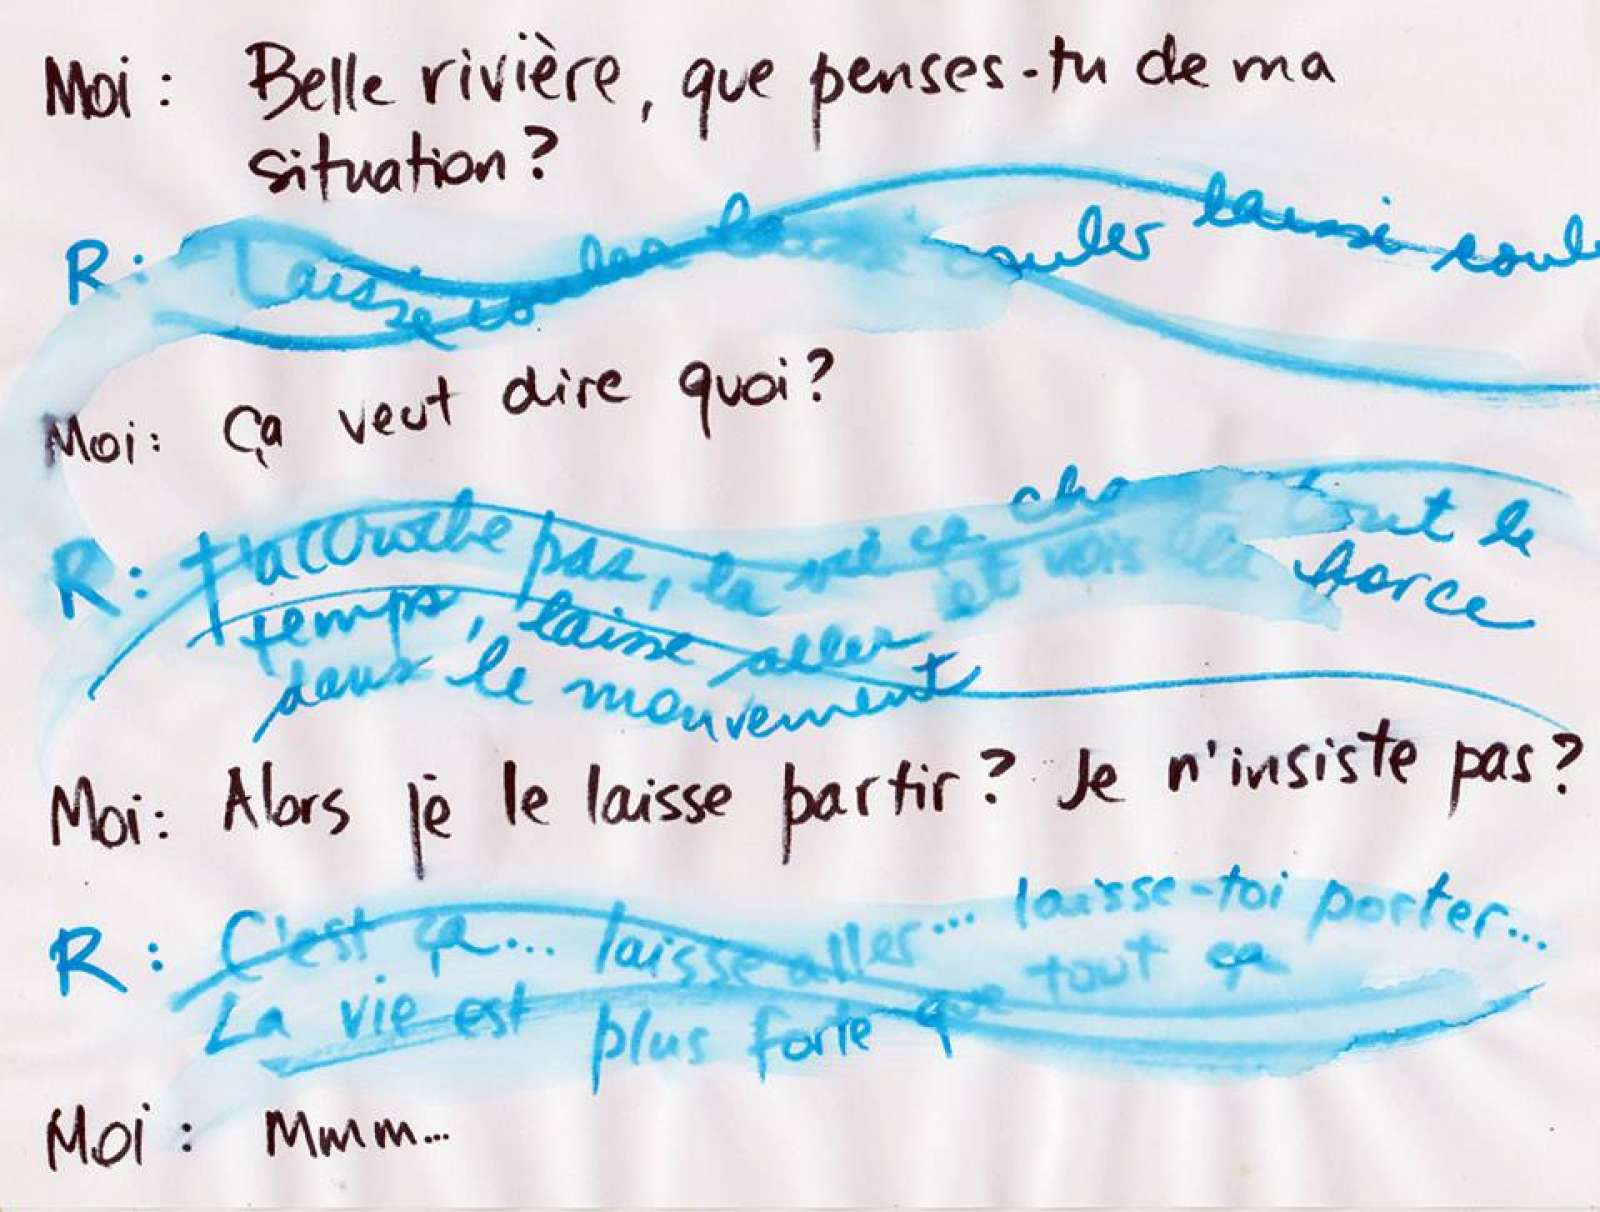 Moi : Belle rivière, que penses-tu de ma
situation ?
R : Laisse couler laisse couler laisse coul
Moi : Ça veut dire quoi ?
R : t'accroche pas, la vie ça change tout le
temps, laisse aller et vois la force
dans le mouvement
Moi : Alors je le laisse partir ? Je n'insiste pas ?
R : C'est ça... laisse aller... laisse-toi porter...
La vie est plus forte que tout ça
Moi : Mmm...